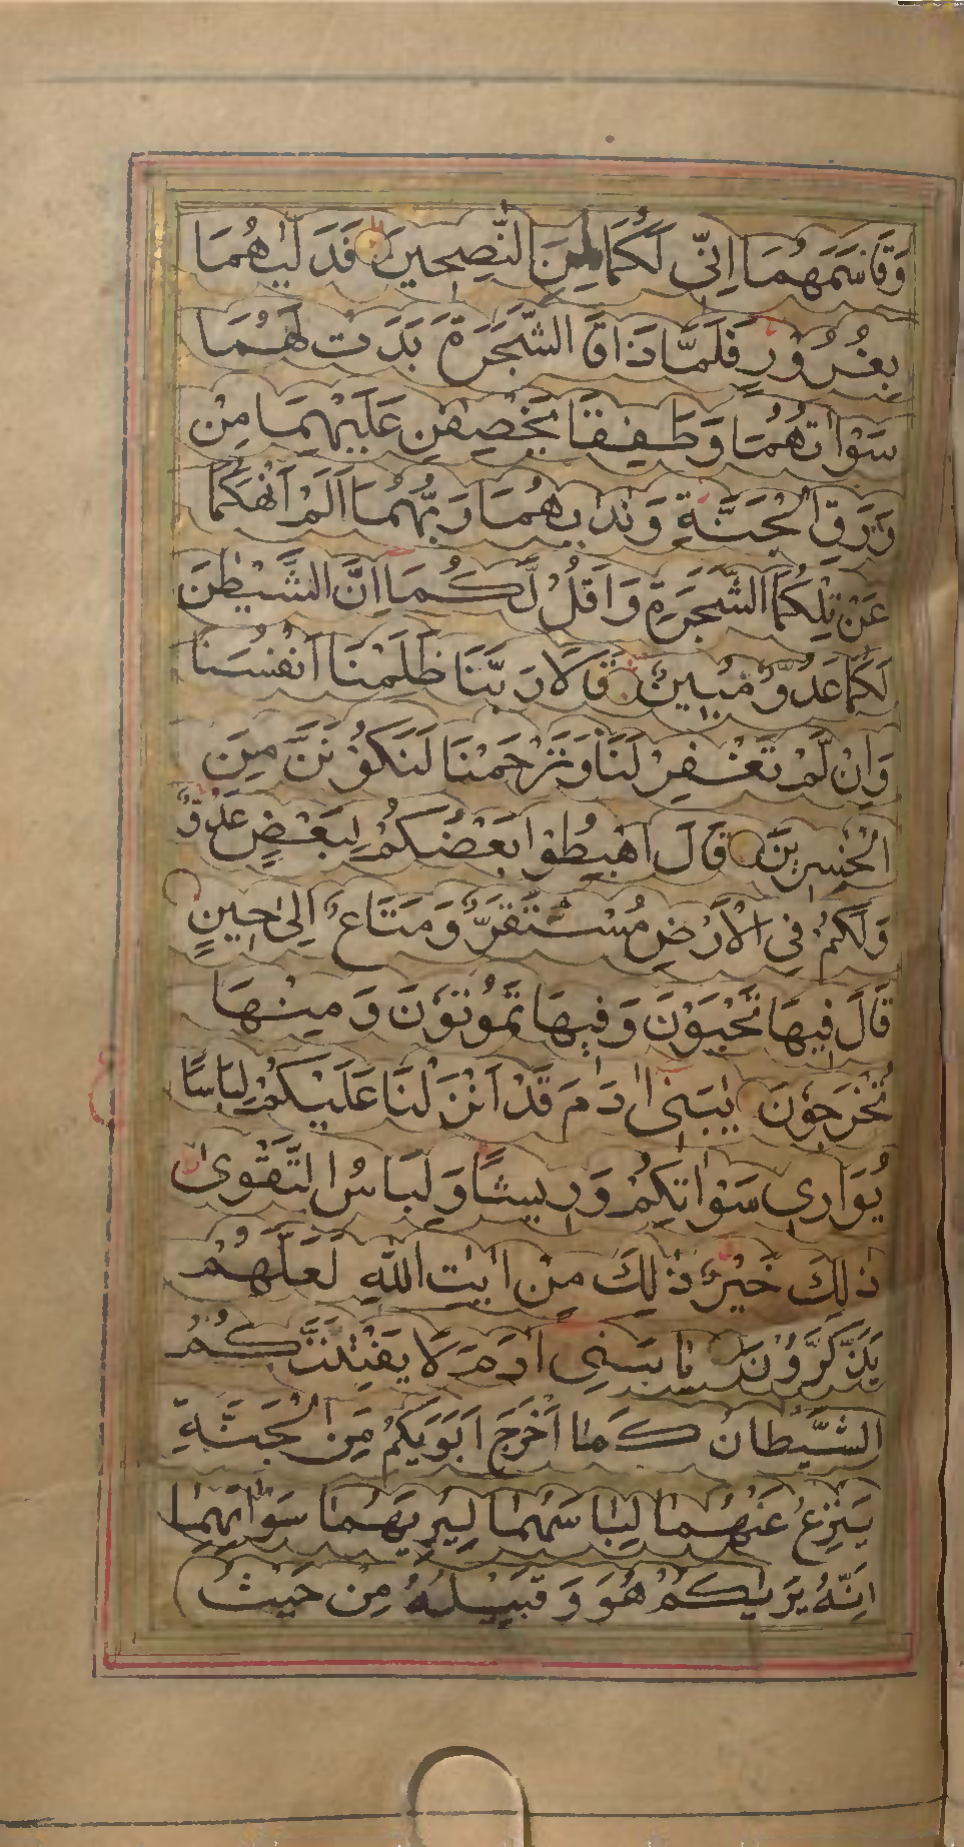 وَقَاسَمَهُمَا اِنِّى لَكُمَا لَمِنَ النّٰصِحِينَ فَدَلّٰيهُمَا
بِغُرُوْرٍ فَلَمَّا ذَاقَا الشَّجَرَةَ بَدَتْ لَهُمَا
سَوْاٰتُهُمَا وَطَفِقَا يَخْصِفٰنِ عَلَيْهِمَا مِنْ
وَرَقِ الْجَنَّةِ وَنَادٰىهُمَا رَبُّهُمَا اَلَمْ اَنْهَكُمَا
عَنْ تِلْكُمَا الشَّجَرَةِ وَاَقُلْ لَّكُمَا اِنَّ الشَّيْطٰنَ
لَكُمَا عَدُوٌّ مُّبِينٌ قَالَا رَبَّنَا ظَلَمْنَا اَنْفُسَنَا
وَاِنْ لَّمْ تَغْفِرْ لَنَا وَتَرْحَمْنَا لَنَكُوْنَنَّ مِنَ
الْخٰسِرِينَ قَالَ اهْبِطُوْا بَعْضُكُمْ لِبَعْضٍ عَدُوٌّ
وَلَكُمْ فِى الْاَرْضِ مُسْتَقَرٌّ وَمَتَاعٌ اِلٰى حِينٍ
قَالَ فِيهَا تَحْيَوْنَ وَفِيهَا تَمُوْتُوْنَ وَمِنْهَا
تُخْرَجُوْنَ يٰبَنِىٓ اٰدَمَ قَدْ اَنْزَلْنَا عَلَيْكُمْ لِبَاسًا
يُوَارِى سَوْاٰتِكُمْ وَرِيشًا وَلِبَاسُ التَّقْوٰى
ذٰلِكَ خَيْرٌ ذٰلِكَ مِنْ اٰيٰتِ اللّٰهِ لَعَلَّهُمْ
يَذَّكَّرُوْنَ يَا بَنِىٓ اٰدَمَ لَا يَفْتِنَنَّكُمُ
الشَّيْطَانُ كَمَا اَخْرَجَ اَبَوَيْكُمْ مِنَ الْجَنَّةِ
يَنْزِعُ عَنْهُمَا لِبَاسَهُمَا لِيُرِيَهُمَا سَوْاٰتِهِمَا
اِنَّهُ يَرٰيكُمْ هُوَ وَقَبِيْلُهُ مِنْ حَيْثُ